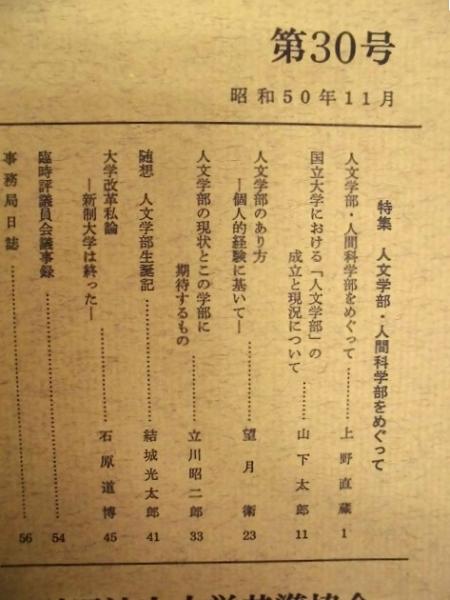 第30号
昭和50年11月
特集 人文学部・人間科学部をめぐって
人文学部・人間科学部をめぐって…………上野直蔵 1
国立大学における「人文学部」の
成立と現況について…………山下太郎 11
人文学部のあり方
―個人的経験に基いて―…………望月衛 23
人文学部の現状とこの学部に
期待するもの…………立川昭二郎 33
随想 人文学部生誕記…………結城光太郎 41
大学改革私論
―新制大学は終った―…………石原道博 45
臨時評議員会議事録…………54
事務局日誌…………56